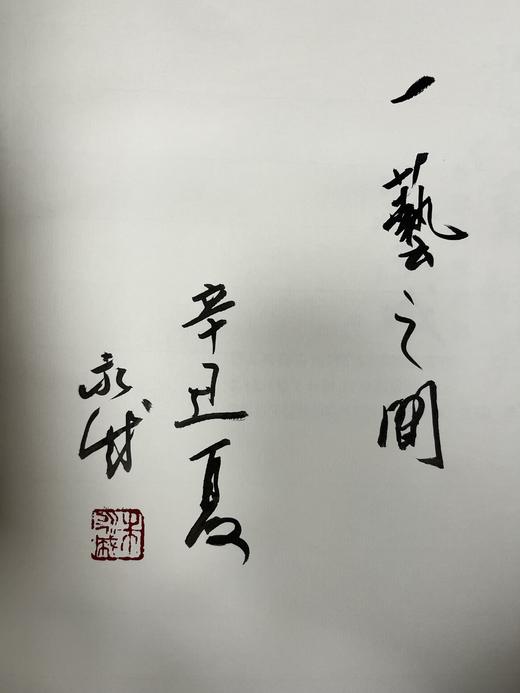 一藝之間
辛丑夏
永